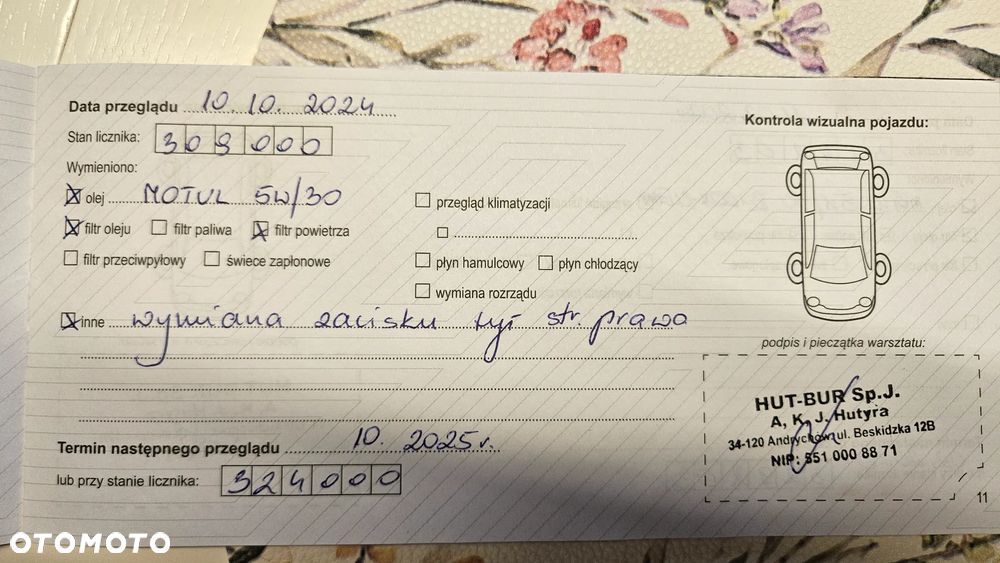 Data przeglądu 10.10. 2024
Stan licznika: 309000
Wymieniono:
olej MOTUL 5W/30
filtr oleju filtr paliwa filtr powietrza
filtr przeciwpyłowy świece zapłonowe
przegląd klimatyzacji
płyn hamulcowy płyn chłodzący
wymiana rozrządu
inne wymiana zacisku tył str. prawa
Termin następnego przeglądu 10. 2025r.
lub przy stanie licznika: 324000
Kontrola wizualna pojazdu:
podpis i pieczątka warsztatu:
HUT-BUR Sp.J.
A, K, J. Hutyra
34-120 Andrychów ul. Beskidzka 12B
NIP: 551 000 88 71
11
OTOMOTO